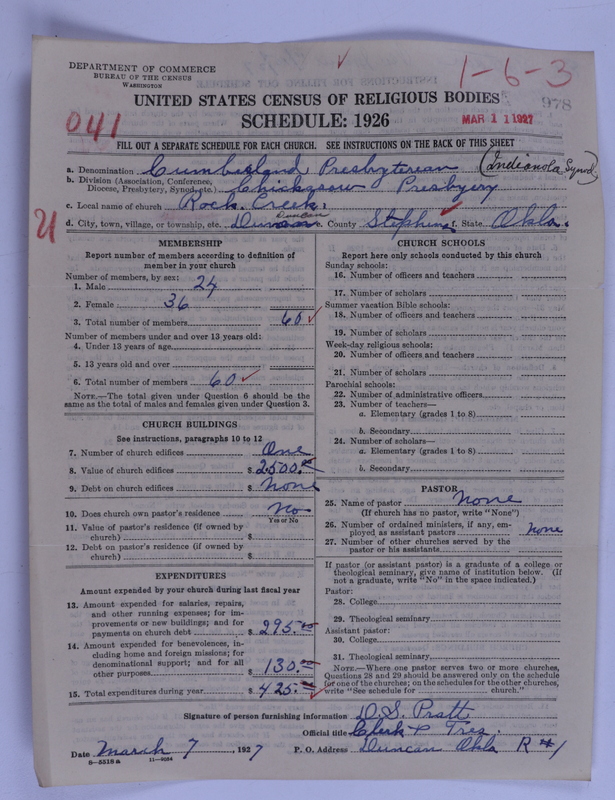 DEPARTMENT OF COMMERCE
BUREAU OF THE CENSUS
WASHINGTON
1-6-3
UNITED STATES CENSUS OF RELIGIOUS BODIES
978
SCHEDULE: 1926
MAR 11 1927
041
FILL OUT A SEPARATE SCHEDULE FOR EACH CHURCH. SEE INSTRUCTIONS ON THE BACK OF THIS SHEET
a. Denomination Cumberland Presbyterian (Indianola Synod)
b. Division (Association, Conference, Diocese, Presbytery, Synod, etc.) Chickasaw Presbyery
c. Local name of church Rock Creek
d. City, town, village, or township, etc. Duncan Duncan e. County Stephens f. State Okla.
U
MEMBERSHIP
Report number of members according to definition of
member in your church
Number of members, by sex:
1. Male 24
2. Female 36
3. Total number of members 60
Number of members under and over 13 years old:
4. Under 13 years of age
5. 13 years old and over
6. Total number of members 60
NOTE.—The total given under Question 6 should be the
same as the total of males and females given under Question 3.
CHURCH BUILDINGS
See instructions, paragraphs 10 to 12
7. Number of church edifices One
8. Value of church edifices $ 2500.00
9. Debt on church edifices $ none
10. Does church own pastor's residence? no
Yes or No
11. Value of pastor's residence (if owned by
church) $
12. Debt on pastor's residence (if owned by
church) $
EXPENDITURES
Amount expended by your church during last fiscal year
13. Amount expended for salaries, repairs,
and other running expenses; for im-
provements or new buildings; and for
payments on church debt $ 295.00
14. Amount expended for benevolences, in-
cluding home and foreign missions; for
denominational support; and for all
other purposes $ 130.00
15. Total expenditures during year $ 425.00
CHURCH SCHOOLS
Report here only schools conducted by this church
Sunday schools:
16. Number of officers and teachers
17. Number of scholars
Summer vacation Bible schools:
18. Number of officers and teachers
19. Number of scholars
Week-day religious schools:
20. Number of officers and teachers
21. Number of scholars
Parochial schools:
22. Number of administrative officers
23. Number of teachers—
a. Elementary (grades 1 to 8)
b. Secondary
24. Number of scholars—
a. Elementary (grades 1 to 8)
b. Secondary
PASTOR
25. Name of pastor none
(If church has no pastor, write "None")
26. Number of ordained ministers, if any, em-
ployed as assistant pastors none
27. Number of other churches served by the
pastor or his assistants
If pastor (or assistant pastor) is a graduate of a college or
theological seminary, give name of institution below. (If
not a graduate, write "No" in the space indicated.)
Pastor:
28. College
29. Theological seminary
Assistant pastor:
30. College
31. Theological seminary
NOTE.—Where one pastor serves two or more churches,
Questions 28 and 29 should be answered only on the schedule
for one of the churches; on the schedules for the other churches,
write "See schedule for church."
Signature of person furnishing information D.S. Pratt
Official title Clerk & Tres.
Date March 7, 1927 P. O. Address Duncan Okla R #1
8-5518 a 11-9034